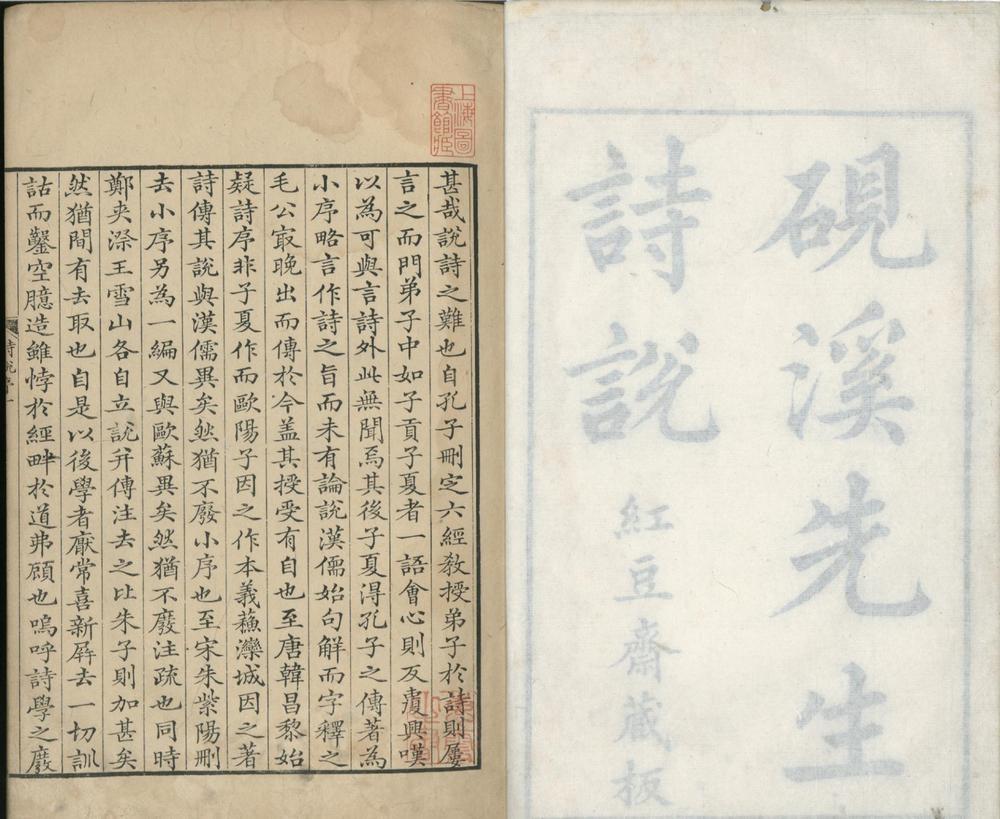 硯溪先生
詩說
紅豆齋藏板
上海圖
書館藏
甚哉說詩之難也自孔子刪定六經敎授弟子於詩則屢
言之而門弟子中如子貢子夏者一語會心則反覆興嘆
以為可與言詩外此無聞焉其後子夏得孔子之傳著為
小序略言作詩之旨而未有論說漢儒始句解而字釋之
毛公㝡晚出而傳於今盖其授受有自也至唐韓昌黎始
疑詩序非子夏作而歐陽子因之作本義蘓灤城因之著
詩傳其說與漢儒異矣然猶不廢小序也至宋朱紫陽刪
去小序另為一編又與歐蘇異矣然猶不廢注疏也同時
鄭夾漈王雪山各自立說并傳注去之比朱子則加甚矣
然猶間有去取也自是以後學者厭常喜新屏去一切訓
詁而鑿空臆造雖悖於經畔於道弗顧也嗚呼詩學之廢
詩說序
一